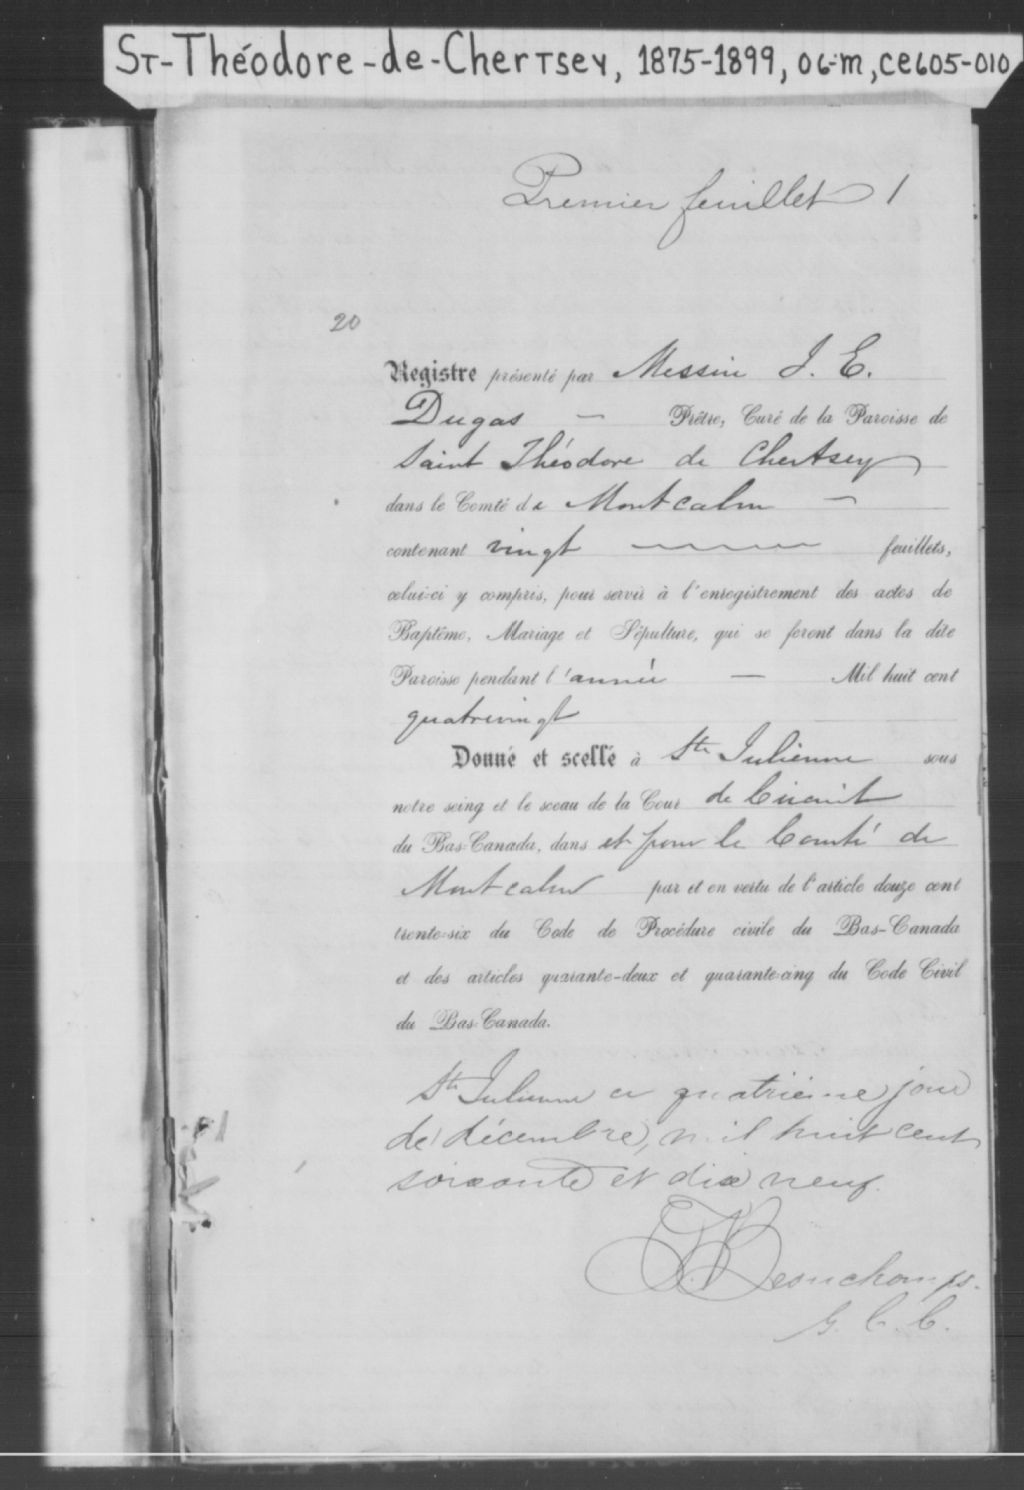 ST-Théodore-de-Chertsey, 1875-1899, 06-M, CE605-010
Premier feuillet 1
20
Registre présenté par Messire J. E.
Dugas — Prêtre, Curé de la Paroisse de
Saint Théodore de Chertsey
dans le Comté de Montcalm —
contenant vingt feuillets,
celui-ci y compris, pour servir à l'enregistrement des actes de
Baptême, Mariage et Sépulture, qui se feront dans la dite
Paroisse pendant l'année — Mil huit cent
quatrevingt
Donné et scellé à Ste Julienne sous
notre seing et le sceau de la Cour de Circuit
du Bas-Canada, dans et pour le Comté de
Montcalm par et en vertu de l'article douze cent
trente-six du Code de Procédure civile du Bas-Canada
et des articles quarante-deux et quarante-cinq du Code Civil
du Bas-Canada.
Ste Julienne ce quatrième jour
de décembre, mil huit cent
soixante et dix neuf.
Beauchamps.
G. C. C.